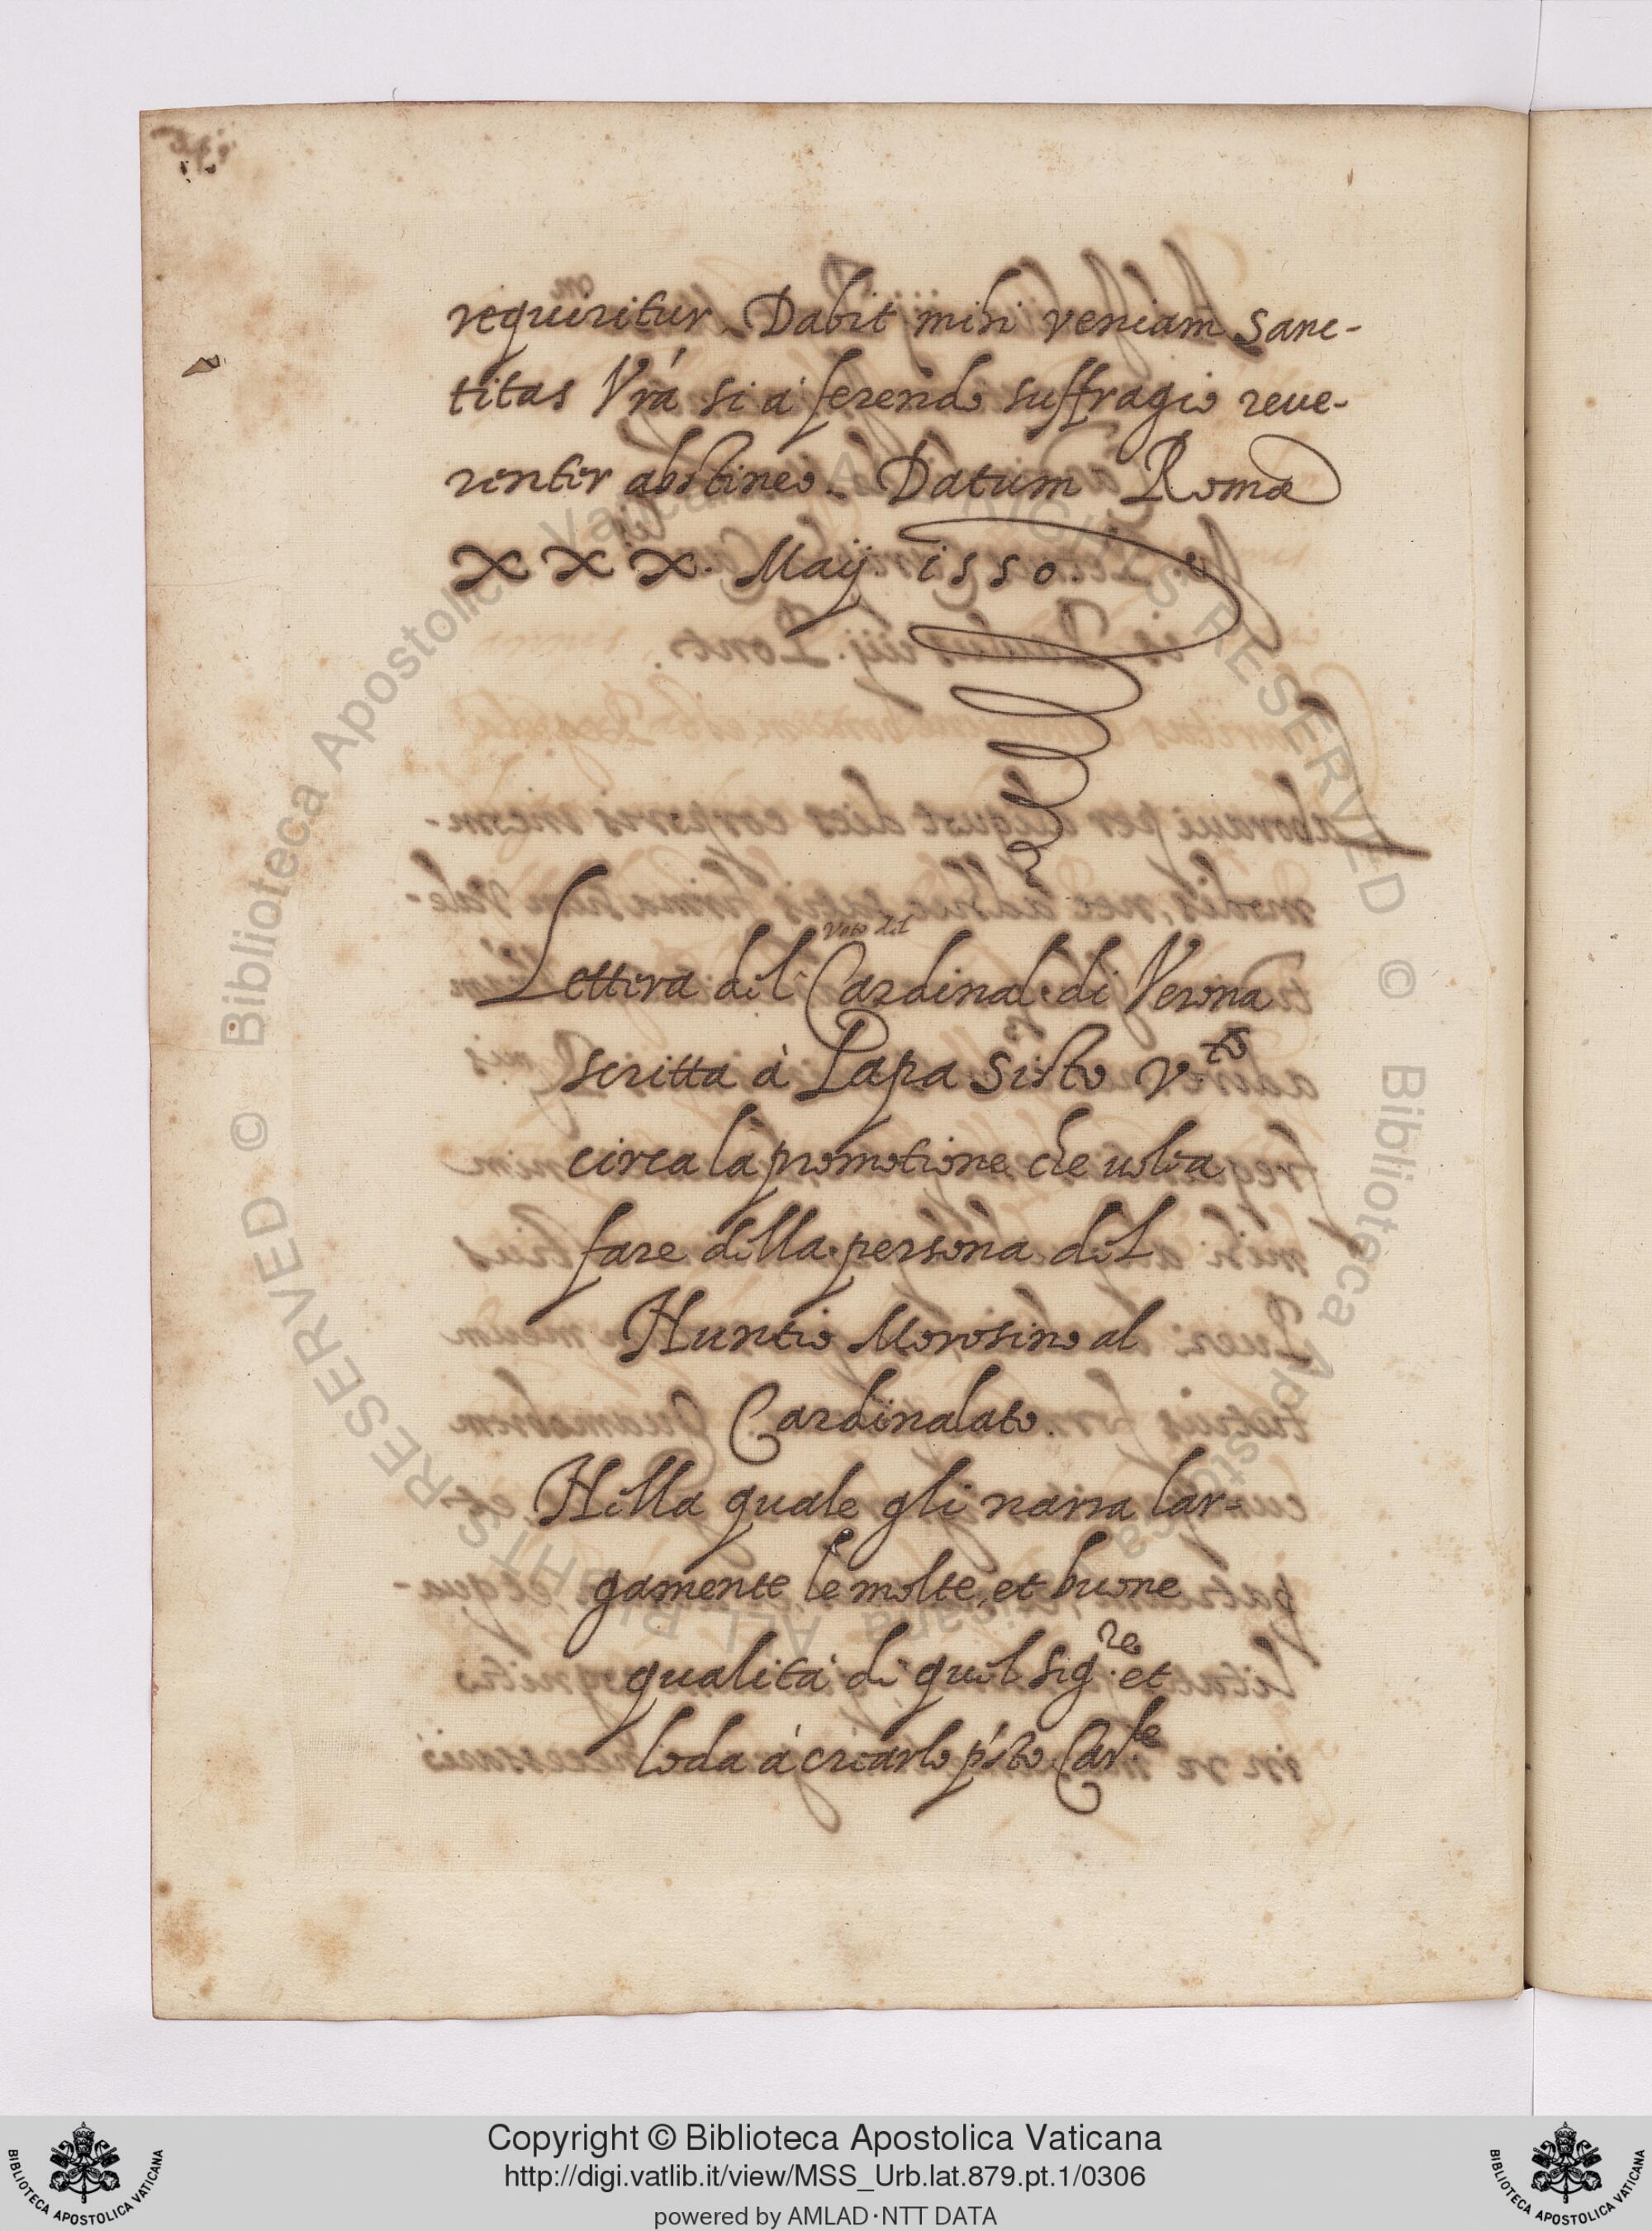 requiritur. Dabit mihi veniam Sanc-
titas Vrá si á ferendo suffragio reue-
renter abstineo. Datum Romæ
XXX. Maij. 1550.
Voto del
Lettera del Cardinale di Verona
scritta à Papa Sisto V.to
circa la promotione che uolea
fare della persona del
Nuntio Morosino al
Cardinalato.
Nella quale gli narra lar-
gamente le molte, et buone
qualitá di quel Sig.re et
loda á crearlo pṡto Carle
Copyright © Biblioteca Apostolica Vaticana
http://digi.vatlib.it/view/MSS_Urb.lat.879.pt.1/0306
powered by AMLAD·NTT DATA
BIBLIOTECA APOSTOLICA VATICANA
BIBLIOTECA APOSTOLICA VATICANA
© Biblioteca Apostolica Vaticana ALL RIGHTS RESERVED